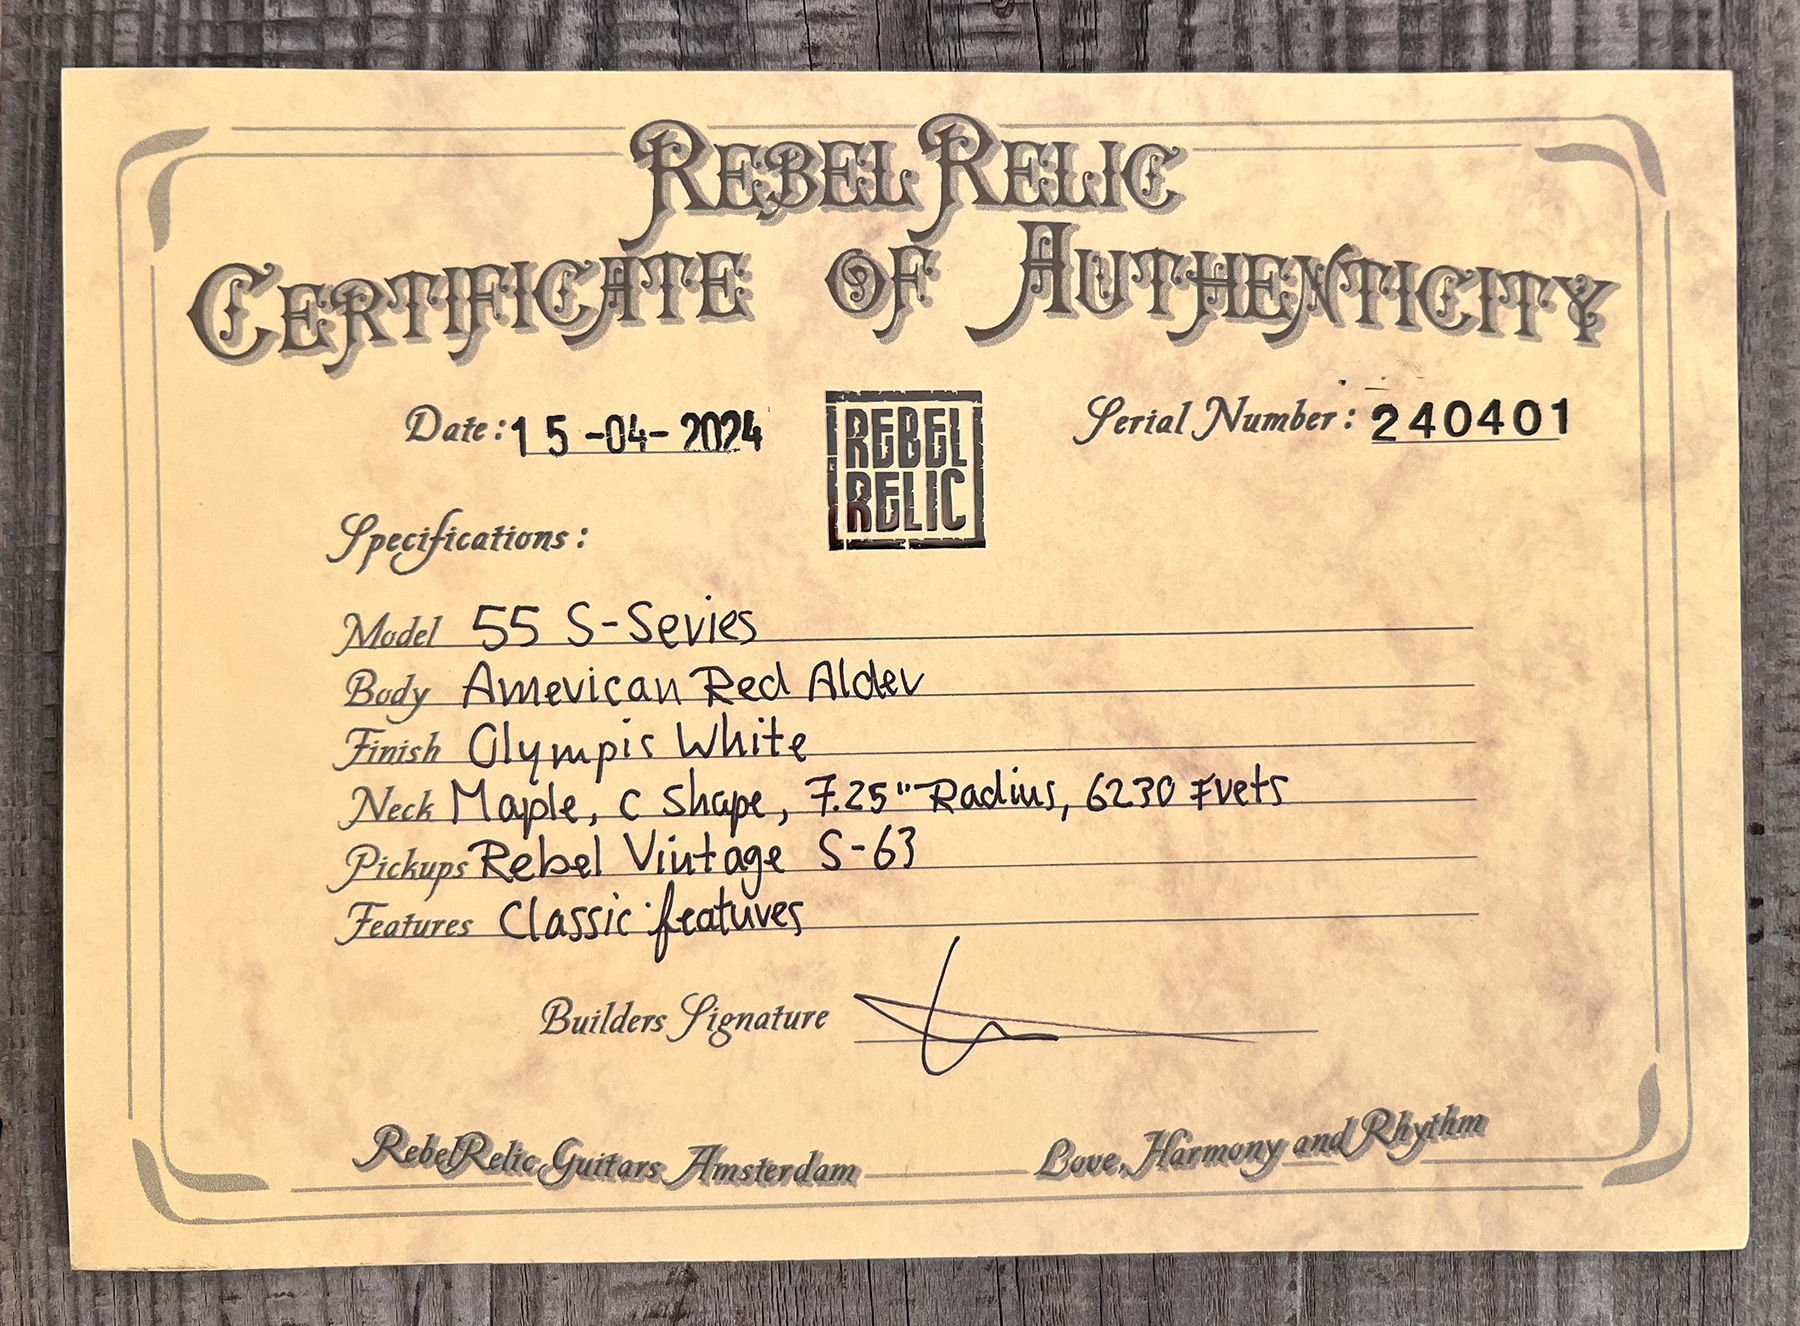 REBEL RELIC
CERTIFICATE OF AUTHENTICITY
Date: 15-04-2024
REBEL
RELIC
Serial Number: 240401
Specifications:
Model 55 S-Series
Body American Red Alder
Finish Olympic White
Neck Maple, C Shape, 7.25" Radius, 6230 Frets
Pickups Rebel Vintage S-63
Features Classic features
Builders Signature
RebelRelic Guitars Amsterdam
Love, Harmony and Rhythm